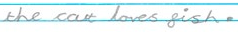 the catt loves gish.